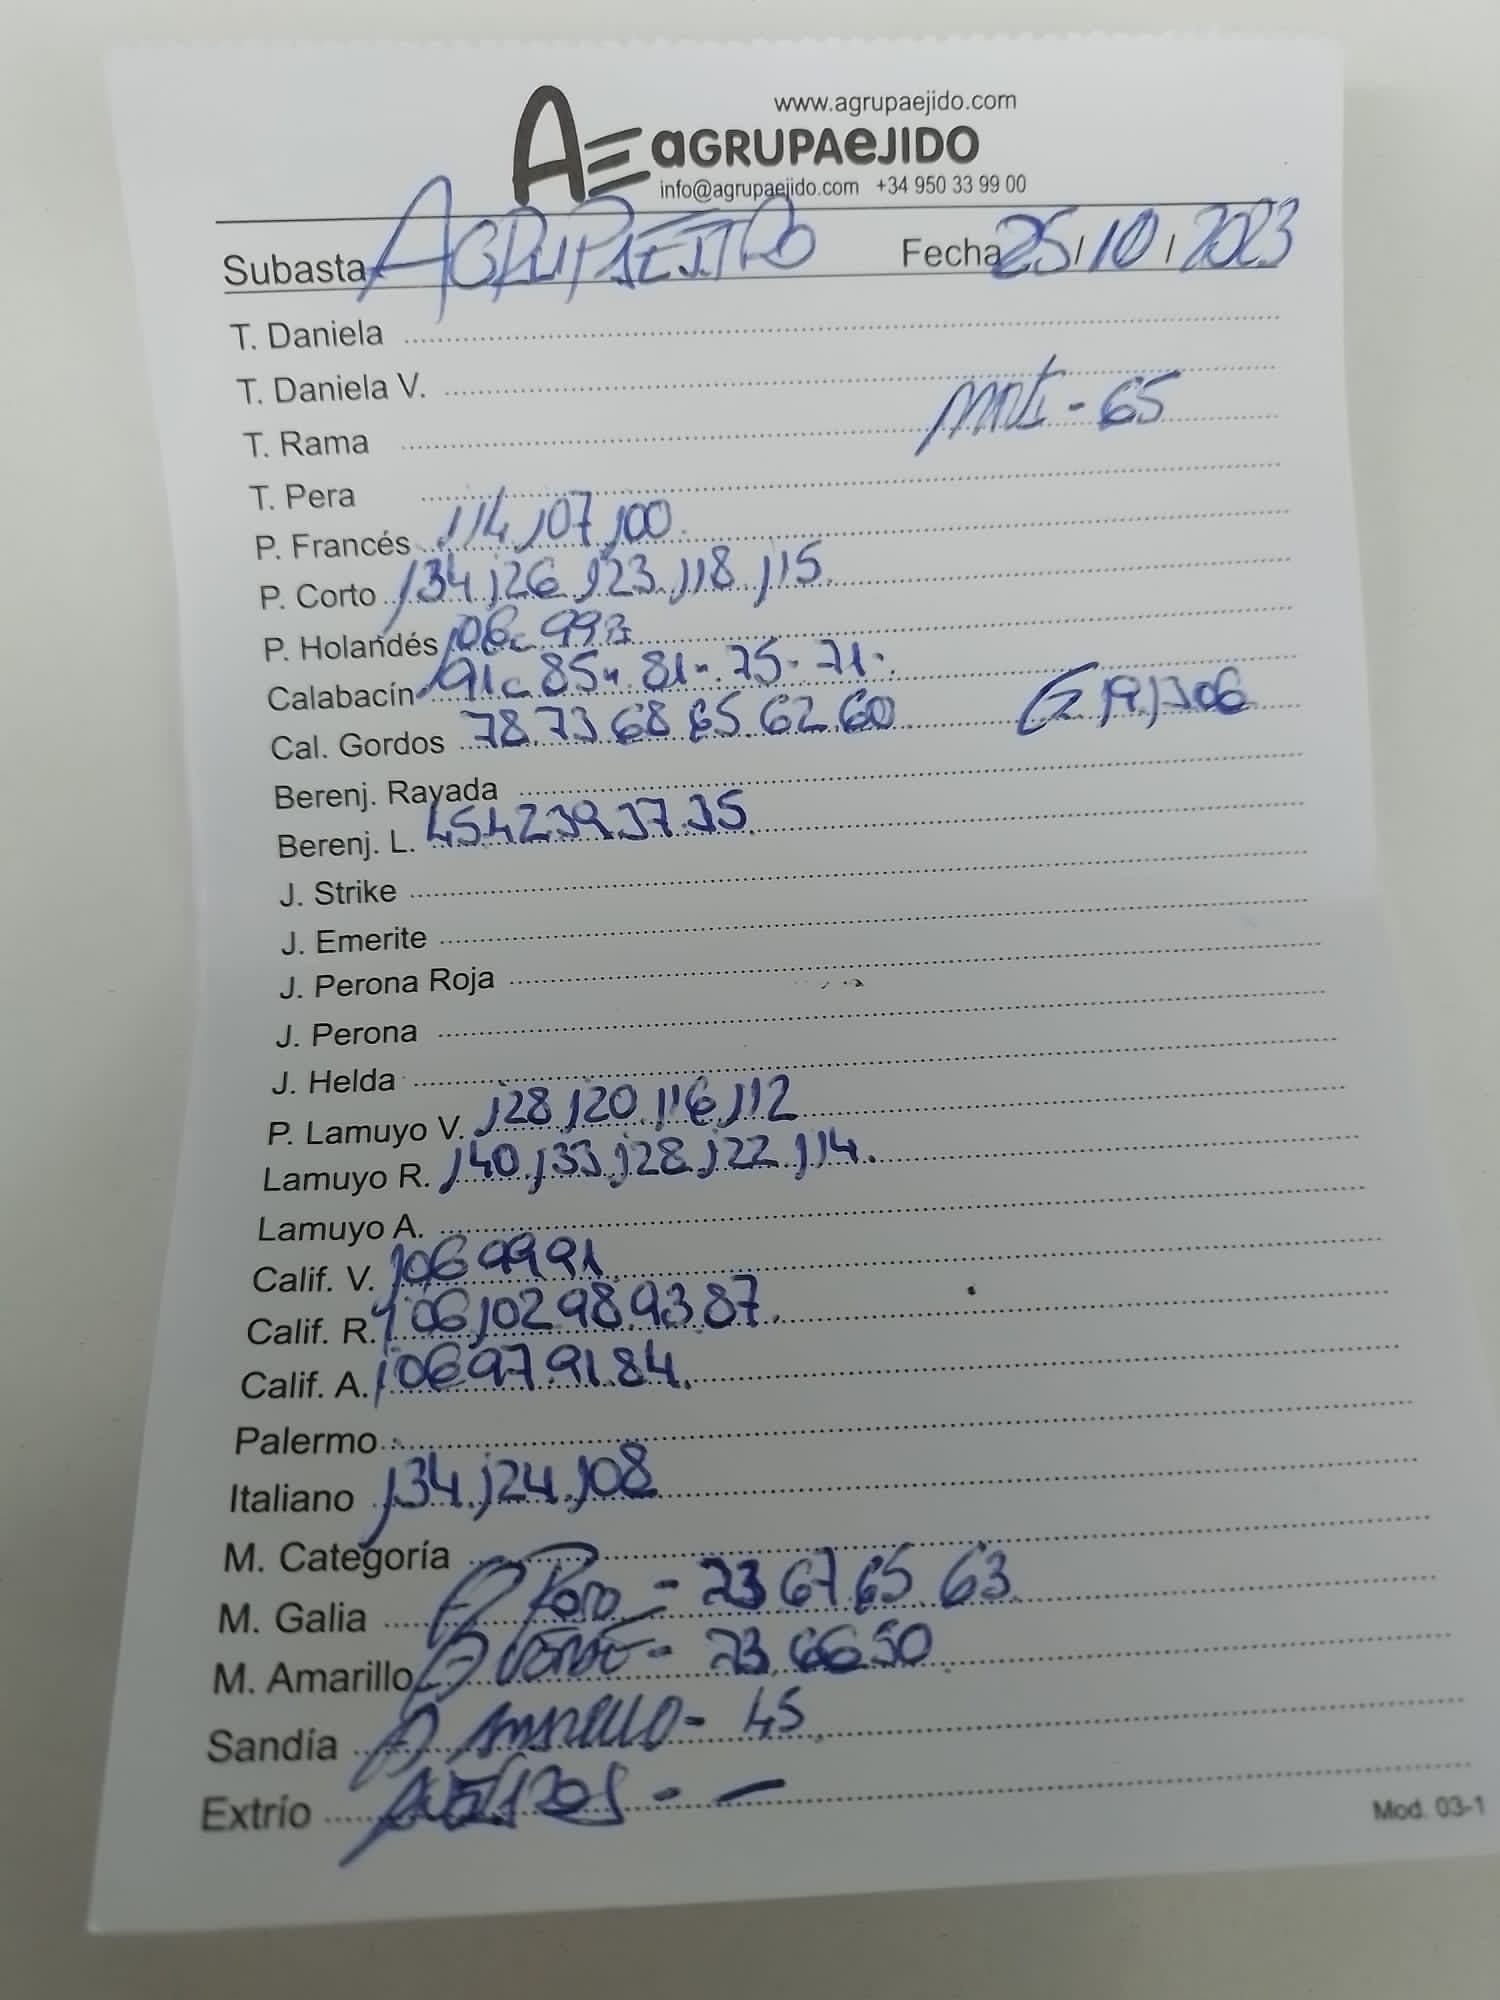 www.agrupaejido.com
AE aGRUPAeJIDO
info@agrupaejido.com +34 950 33 99 00
Subasta AGRUPAEJIDO Fecha 25/10/2023
T. Daniela
T. Daniela V.
T. Rama
- 65
T. Pera
P. Francés 114,107,100.
P. Corto 134,126,123,118,115.
P. Holandés 106-99
Calabacín 91-85-81-75-71-
Cal. Gordos 78.73.68.65.62.60
Berenj. Rayada
Berenj. L. 45.42.39.37.35
J. Strike
J. Emerite
J. Perona Roja
J. Perona
J. Helda
P. Lamuyo V. 128,120,116,112
Lamuyo R. 140,133,128,122,114.
Lamuyo A.
Calif. V. 106 99 91
Calif. R. 106,102 98.93.87.
Calif. A. 106 97.91.84.
Palermo
Italiano 134.124.108
M. Categoría
M. Galia P Rojo - 73 67.65.63.
M. Amarillo P VERDE - 73.66 50
Sandía P AMARILLO - 45
Extrío
Mod. 03-1